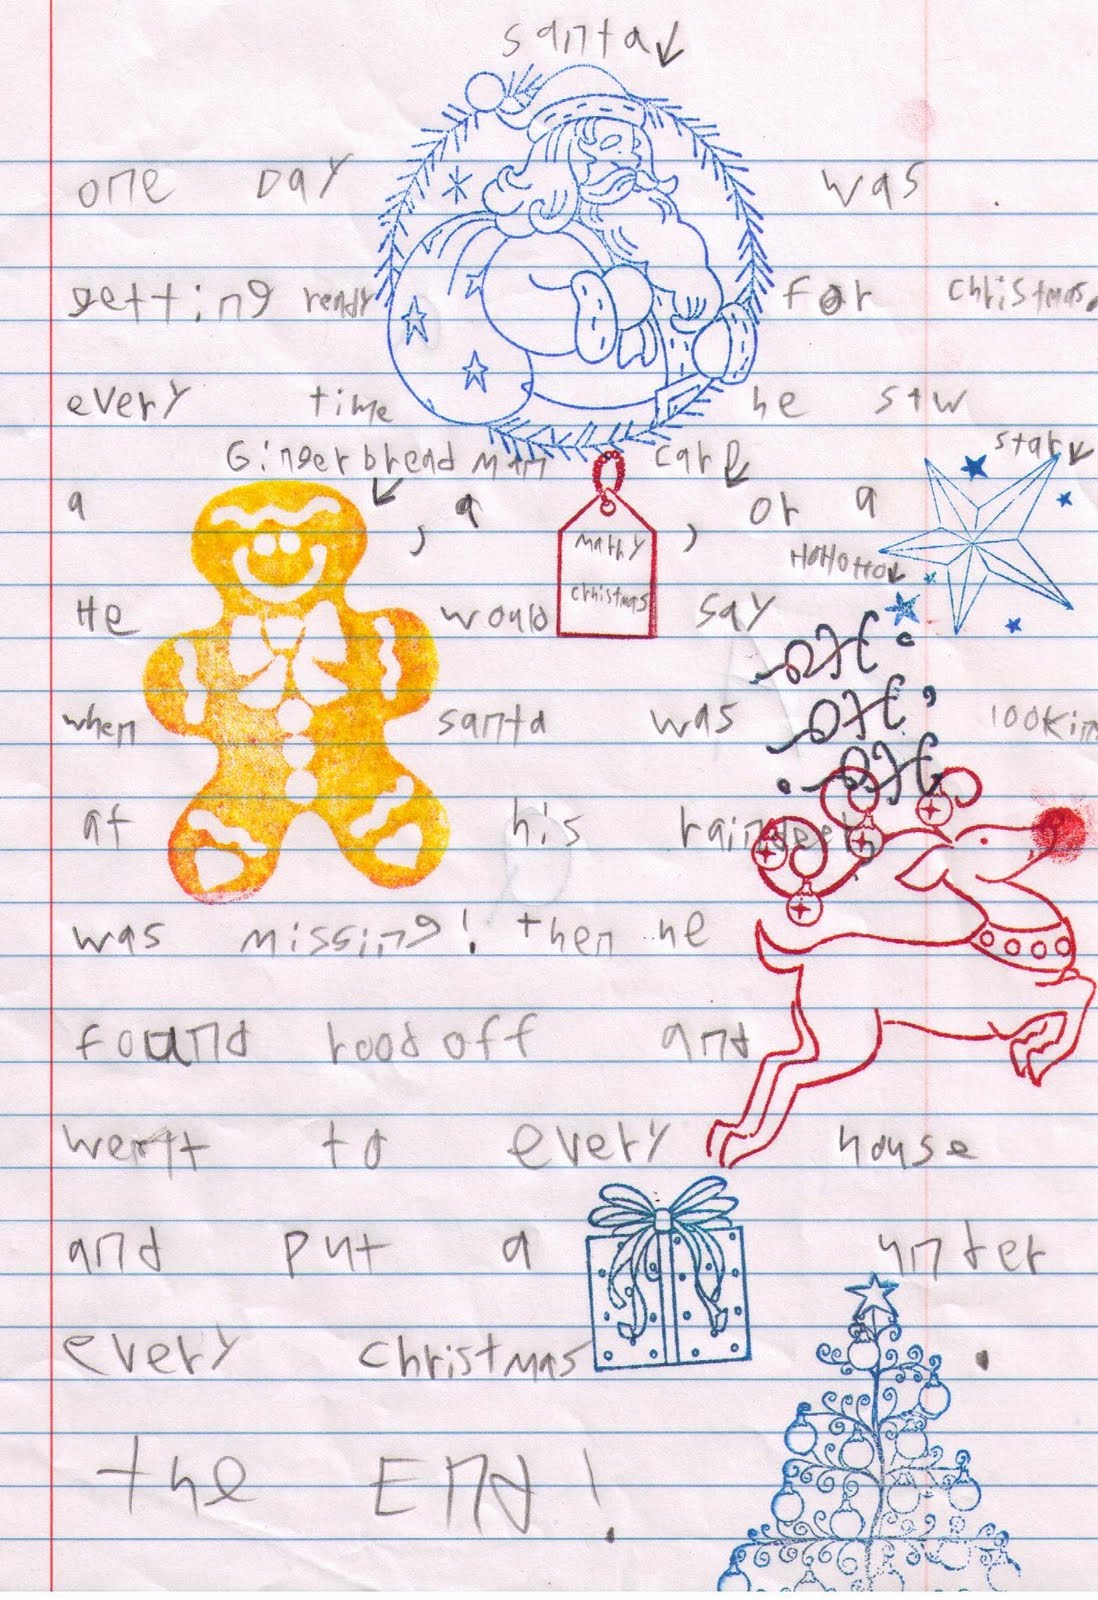 santa
one Day was
getting ready for christmas.
every time he saw
Gingerbread man card star
a , a , or a
marry
christmas
HOHOHO
He would say
Ho.
Ho,
Ho.
when santa was lookin
at his raindeer
was missing! then he
found roodoff and
went to every house
and put a unter
every christmas .
the End!